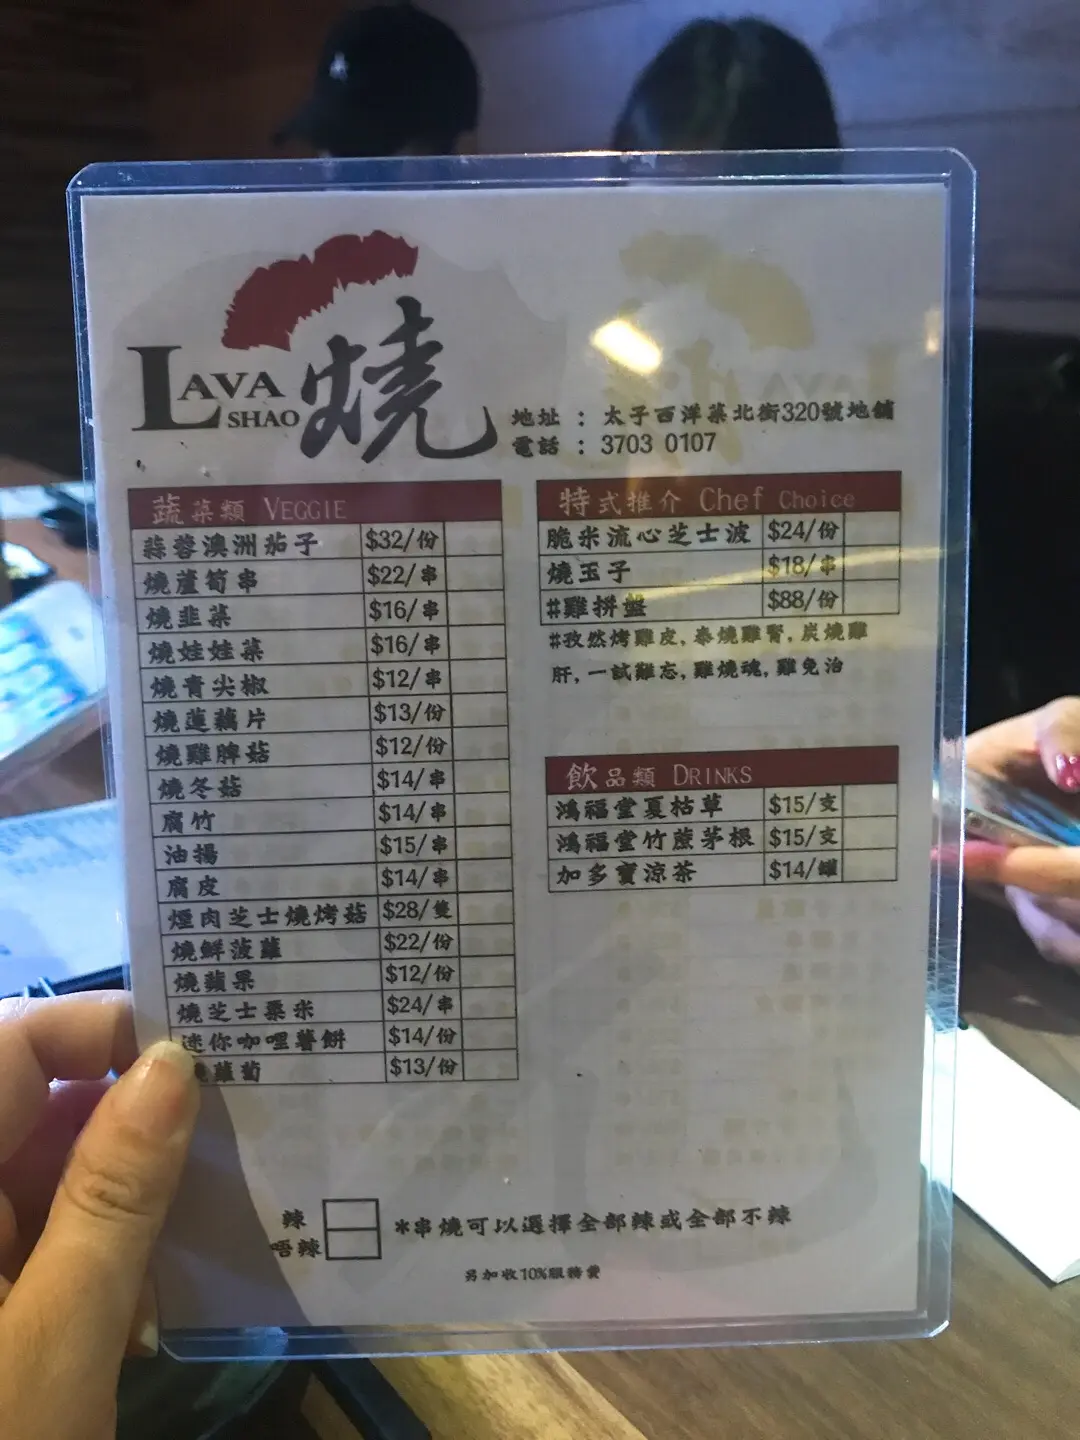 LAVA
SHAO
燒
地址 : 太子西洋菜北街320號地舖
電話 : 3703 0107
蔬菜類 VEGGIE
蒜蓉澳洲茄子 $32/份
燒蘆筍串 $22/串
燒韭菜 $16/串
燒娃娃菜 $16/串
燒青尖椒 $12/串
燒蓮藕片 $13/份
燒雞脾菇 $12/份
燒冬菇 $14/串
腐竹 $14/串
油揚 $15/串
腐皮 $14/串
煙肉芝士燒烤菇 $28/隻
燒鮮菠蘿 $22/份
燒蘋果 $12/份
燒芝士粟米 $24/串
迷你咖哩薯餅 $14/份
燒蘿蔔 $13/份
特式推介 Chef Choice
脆米流心芝士波 $24/份
燒玉子 $18/串
#雞拼盤 $88/份
#孜然烤雞皮, 泰燒雞腎, 炭燒雞
肝, 一試難忘, 雞燒魂, 雞免治
飲品類 DRINKS
鴻福堂夏枯草 $15/支
鴻福堂竹蔗茅根 $15/支
加多寶涼茶 $14/罐
辣
唔辣
*串燒可以選擇全部辣或全部不辣
另加收10%服務費